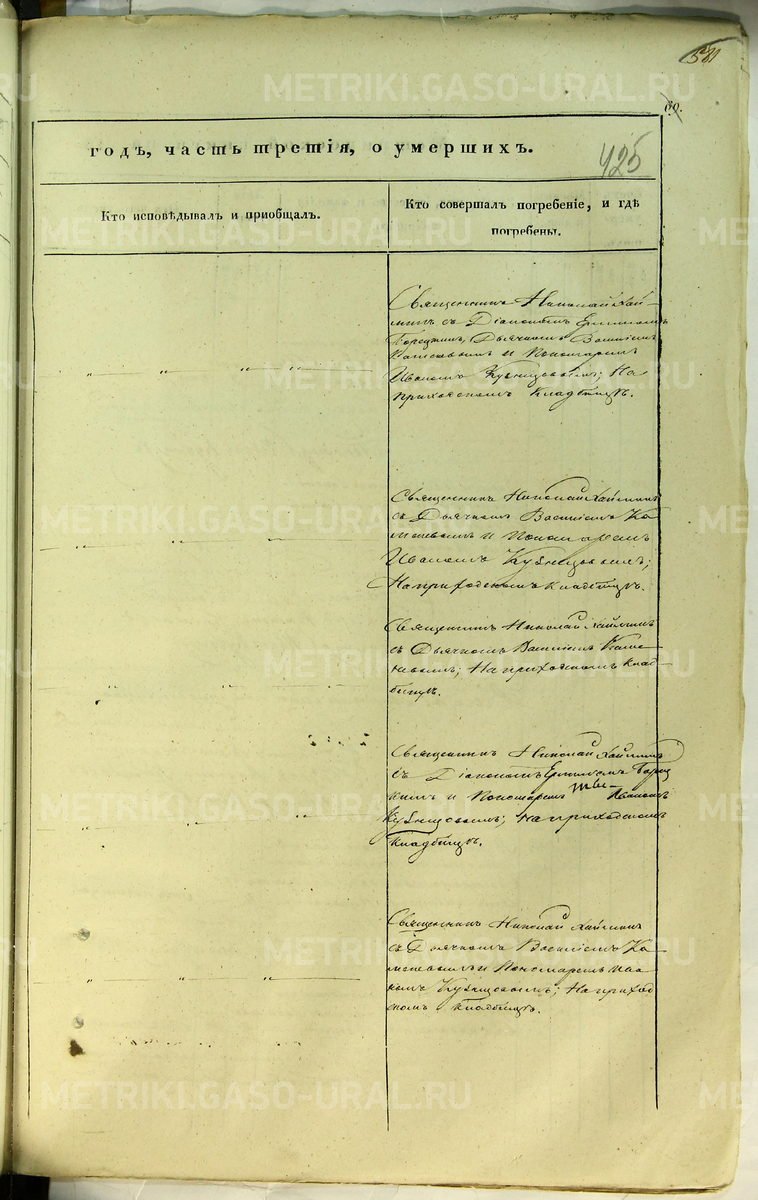 581
60.
годъ, часть третія, о умершихъ.
425
Кто исповѣдывалъ и приобщалъ.
Кто совершалъ погребеніе, и гдѣ
погребены.
Священникъ Николай Хай-
минъ съ Діакономъ
Дьячкомъ Василіем
и Пономаремъ
Иваномъ Кузнецовымъ; На
приходскомъ кладбищѣ.
Священникъ Николай Хайминъ
съ Дьячкомъ Василіемъ Ка
и Пономаремъ
Иваномъ Кузнецовымъ;
На приходскомъ кладбищѣ.
Священникъ Николай Хайминъ
съ Дьячкомъ Василіемъ
На приходскомъ клад-
бищѣ.
Священникъ Николай Хайминъ
съ Діакономъ
кимъ и Пономаремъ Иваномъ
Кузнецовымъ; На приходскомъ
кладбищѣ.
Священникъ Николай Хайминъ
съ Дьячкомъ Василіемъ Ка
и Пономаремъ Ива
номъ Кузнецовымъ; На приход
скомъ кладбищѣ.
METRIKI.GASO-URAL.RU